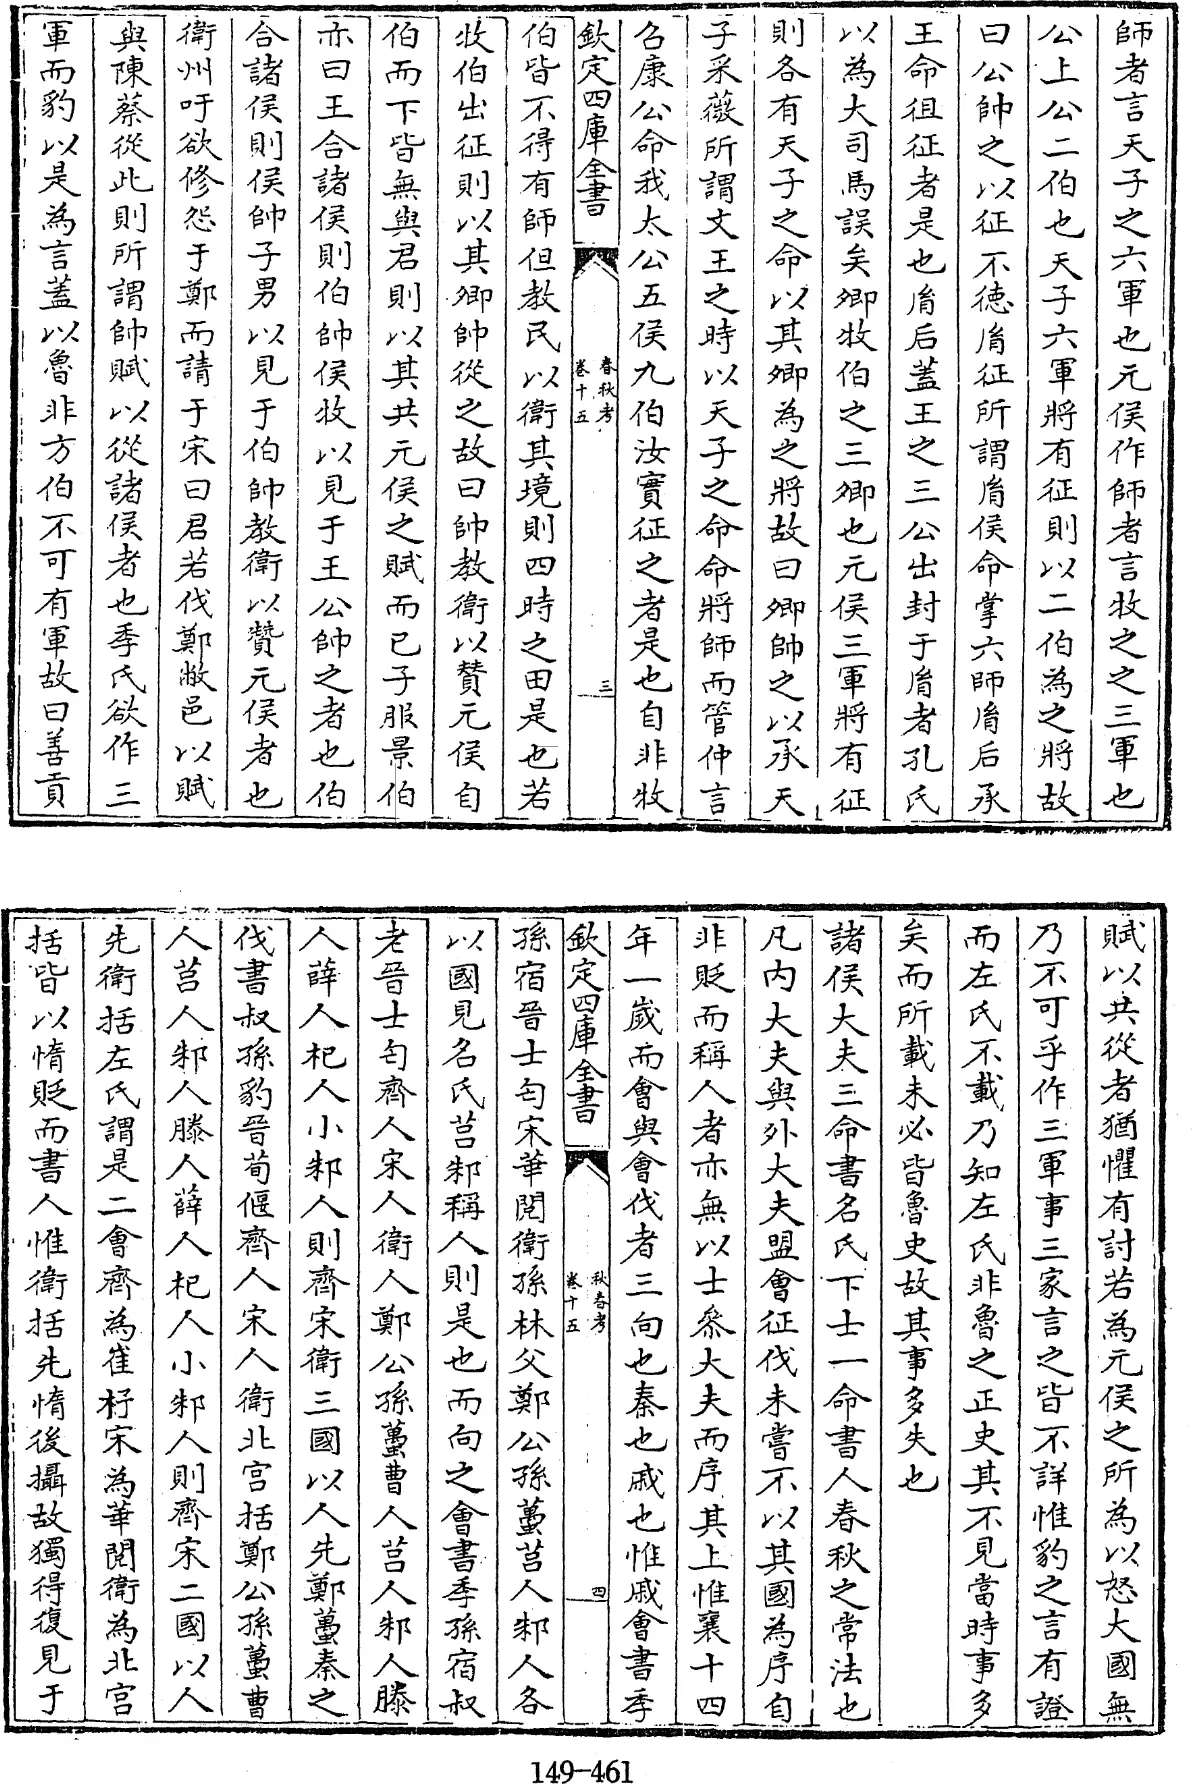 師者言天子之六軍也元侯作師者言牧之之三軍也
公上公二伯也天子六軍將有征則以二伯為之將故
曰公帥之以征不徳胤征所謂胤侯命掌六師胤后承
王命徂征者是也胤后蓋王之三公出封于胤者孔氏
以為大司馬誤矣卿牧伯之三卿也元侯三軍將有征
則各有天子之命以其卿為之將故曰卿帥之以承天
子采薇所謂文王之時以天子之命命將師而管仲言
召康公命我太公五侯九伯汝實征之者是也自非牧
欽定四庫全書
春秋考
卷十五
三
伯皆不得有師但教民以衛其境則四時之田是也若
牧伯出征則以其卿帥從之故曰帥教衛以賛元侯自
伯而下皆無與君則以其共元侯之賦而已子服景伯
亦曰王合諸侯則伯帥侯牧以見于王公帥之者也伯
合諸侯則侯帥子男以見于伯帥教衛以贊元侯者也
衛州吁欲修怨于鄭而請于宋曰君若伐鄭敝邑以賦
與陳蔡從此則所謂帥賦以從諸侯者也季氏欲作三
軍而豹以是為言蓋以魯非方伯不可有軍故曰善貢
賦以共從者猶懼有討若為元侯之所為以怒大國無
乃不可乎作三軍事三家言之皆不詳惟豹之言有證
而左氏不載乃知左氏非魯之正史其不見當時事多
矣而所載未必皆魯史故其事多失也
諸侯大夫三命書名氏下士一命書人春秋之常法也
凡内大夫與外大夫盟會征伐未嘗不以其國為序自
非貶而稱人者亦無以士叅大夫而序其上惟襄十四
年一歲而會與會伐者三向也秦也戚也惟戚會書季
欽定四庫全書
秋春考
卷十五
四
孫宿晉士匄宋華閱衛孫林父鄭公孫蠆莒人邾人各
以國見名氏莒邾稱人則是也而向之會書季孫宿叔
老晉士匄齊人宋人衛人鄭公孫蠆曹人莒人邾人滕
人薛人杞人小邾人則齊宋衛三國以人先鄭蠆秦之
伐書叔孫豹晉荀偃齊人宋人衛北宫括鄭公孫蠆曹
人莒人邾人滕人薛人杞人小邾人則齊宋二國以人
先衛括左氏謂是二會齊為崔杼宋為華閱衛為北宫
括皆以惰貶而書人惟衛括先惰後攝故獨得復見于
149-461